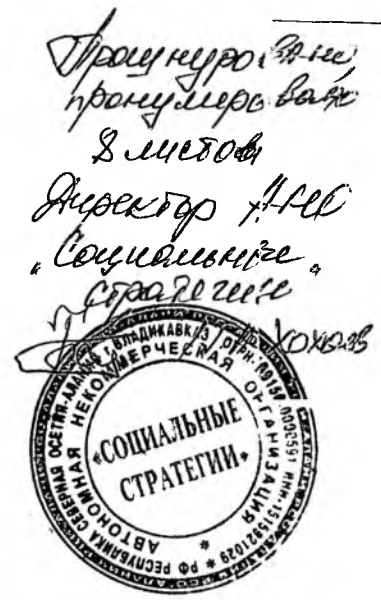 Прошнуровано
пронумеровано
8 листов
Директор АНО
„Социальные
стратегии"
Хохоев
РФ РЕСПУБЛИКА СЕВЕРНАЯ ОСЕТИЯ-АЛАНИЯ г.ВЛАДИКАВКАЗ ОГРН
ИНН-1515921029
АВТОНОМНАЯ НЕКОММЕРЧЕСКАЯ ОРГАНИЗАЦИЯ
«СОЦИАЛЬНЫЕ
СТРАТЕГИИ»